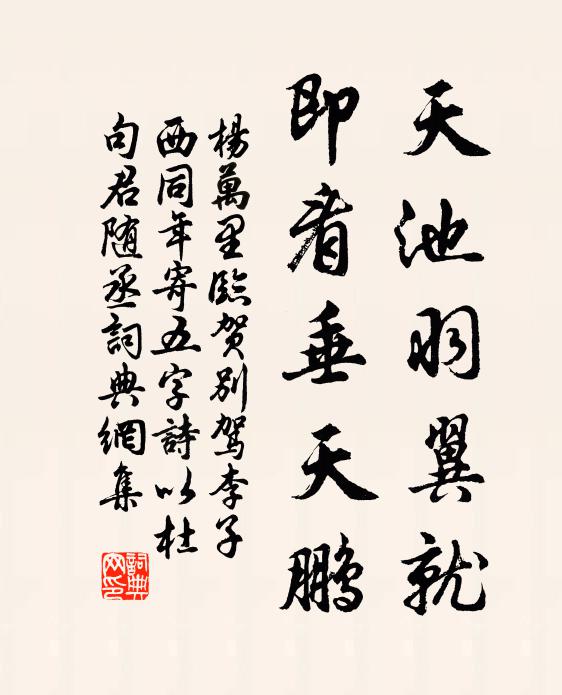 天池羽翼就
即看垂天鵬
楊萬里臨賀別駕李子
西同年寄五字詩以杜
句君随丞詞典網集
詞典
网印